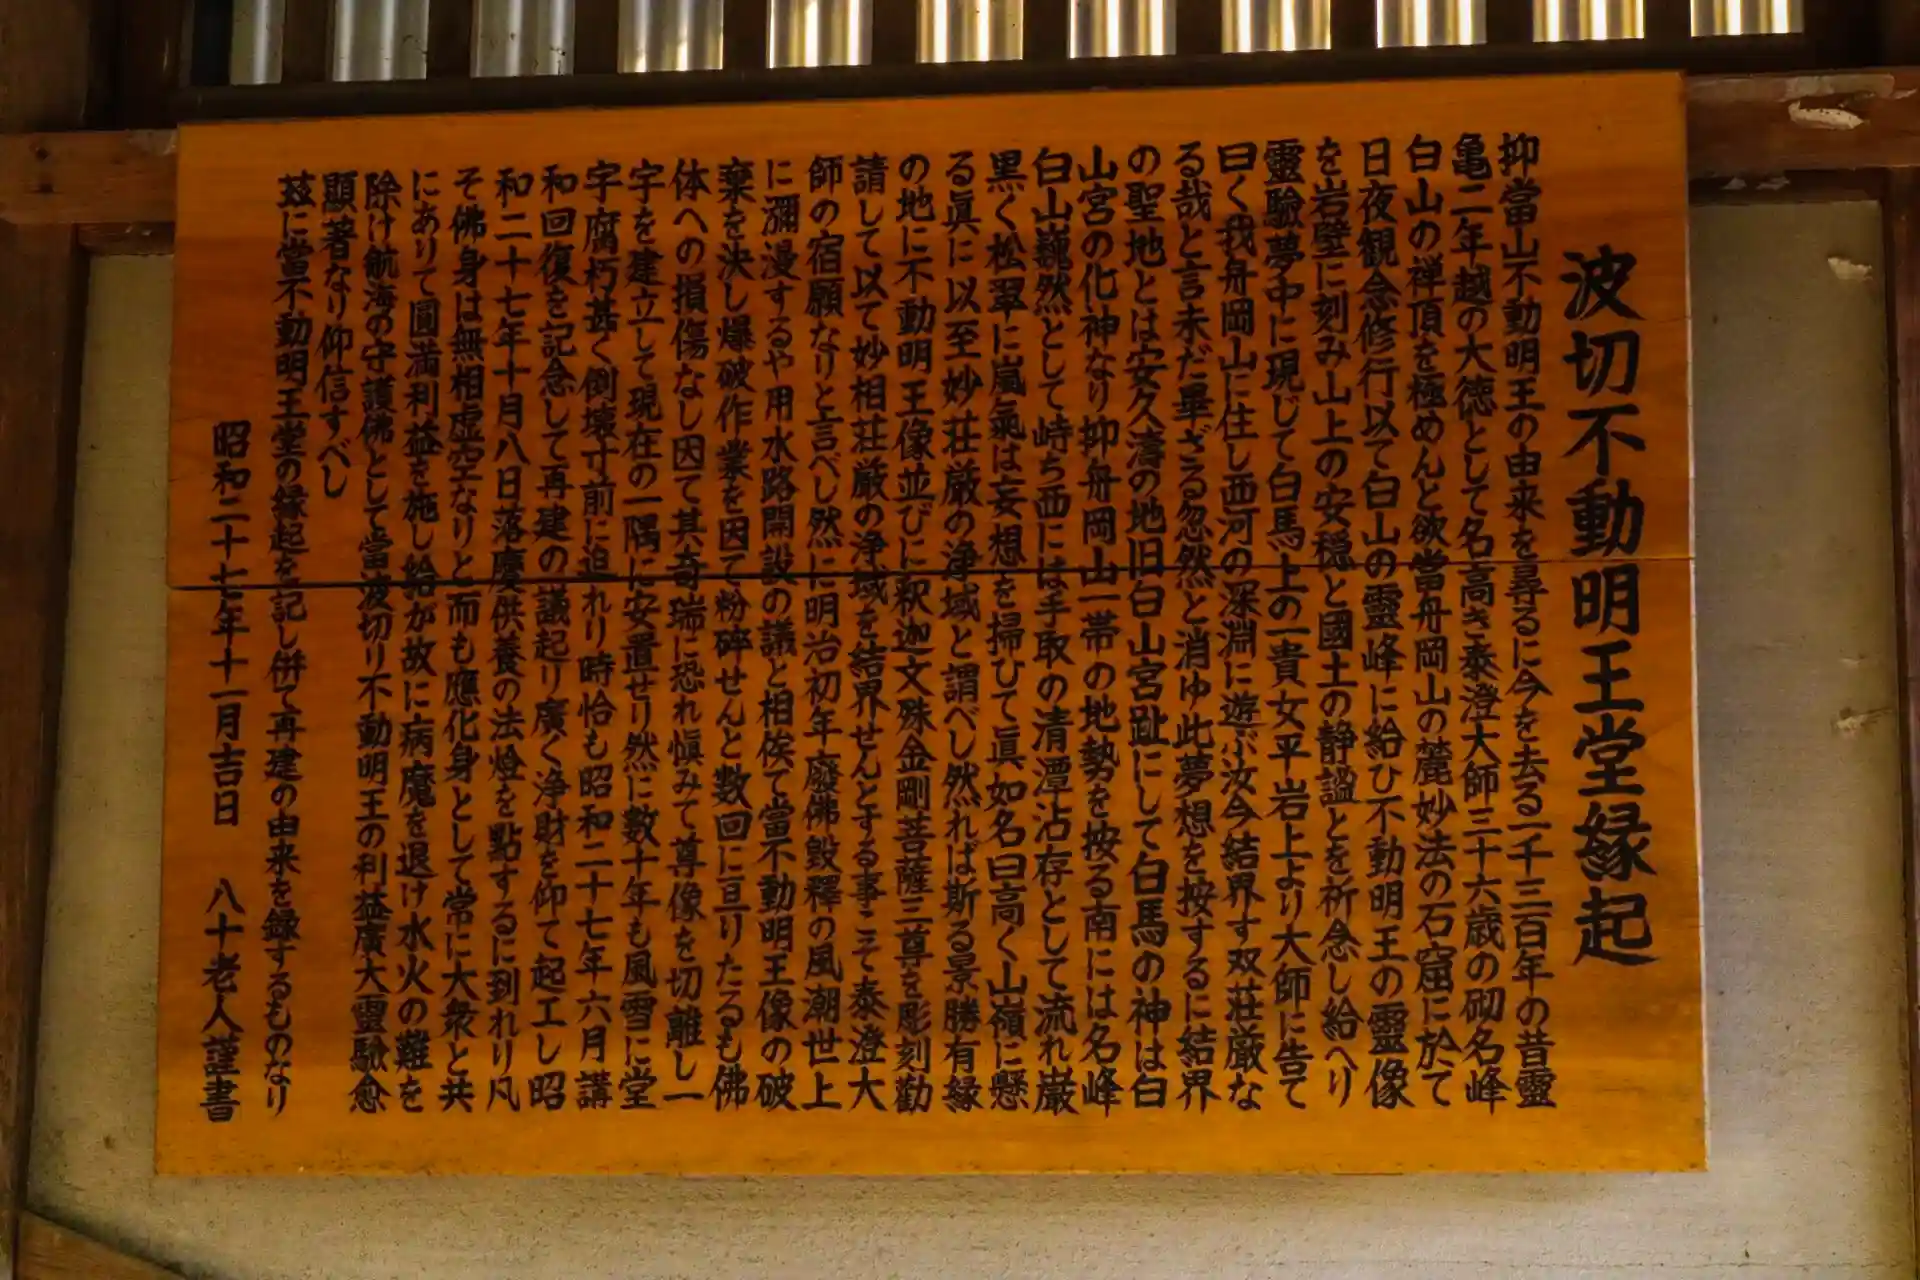 波切不動明王堂縁起
抑當山不動明王の由来を尋るに今を去る一千三百年の昔靈
亀二年越の大徳として名高き泰澄大師三十六歳の砌名峰
白山の禅頂を極めんと欲當舟岡山の麓妙法の石窟に於て
日夜観念修行以て白山の靈峰に給ひ不動明王の靈像
を岩壁に刻み山上の安穏と國土の静謐とを祈念し給へり
靈驗夢中に現じて白馬上の一貴女平岩上より大師に告て
曰く我舟岡山に住し西河の深淵に遊ぶ汝今結界す双荘厳な
る哉と言未だ畢ざる忽然と消ゆ此夢想を按するに結界
の聖地とは安久濤の地旧白山宮趾にして白馬の神は白
山宮の化神なり抑舟岡山一帯の地勢を按る南には名峰
白山巍然として峙ち西には手取の清潭沾存として流れ巌
黒く松翠に嵐氣は妄想を掃ひて眞如名曰高く山嶺に懸
る眞に以至妙荘厳の浄域と謂べし然れば斯る景勝有縁
の地に不動明王像並びに釈迦文殊金剛菩薩三尊を彫刻勸
請して以て妙相荘厳の浄域を結界せんとする事こそ泰澄大
師の宿願なりと言べし然に明治初年廢佛毀釋の風潮世上
に瀰漫するや用水路開設の議と相俟て當不動明王像の破
棄を決し爆破作業を因て粉碎せんと数回に亘りたるも佛
体への損傷なし因て其奇瑞に恐れ愼みて尊像を切離し一
宇を建立して現在の一隅に安置せり然に數十年も風雪に堂
宇腐朽甚く倒壊寸前に迫れり時恰も昭和二十七年六月講
和回復を記念して再建の議起り廣く浄財を仰て起工し昭
和二十七年十月八日落慶供養の法燈を點するに到れり凡
そ佛身は無相虚空なりと而も應化身として常に大衆と共
にありて圓満利益を施し給が故に病魔を退け水火の難を
除け航海の守護佛として當波切り不動明王の利益廣大靈驗愈
顯著なり仰信すべし
茲に當不動明王堂の縁起を記し併て再建の由来を録するものなり
昭和二十七年十一月吉日 八十老人謹書